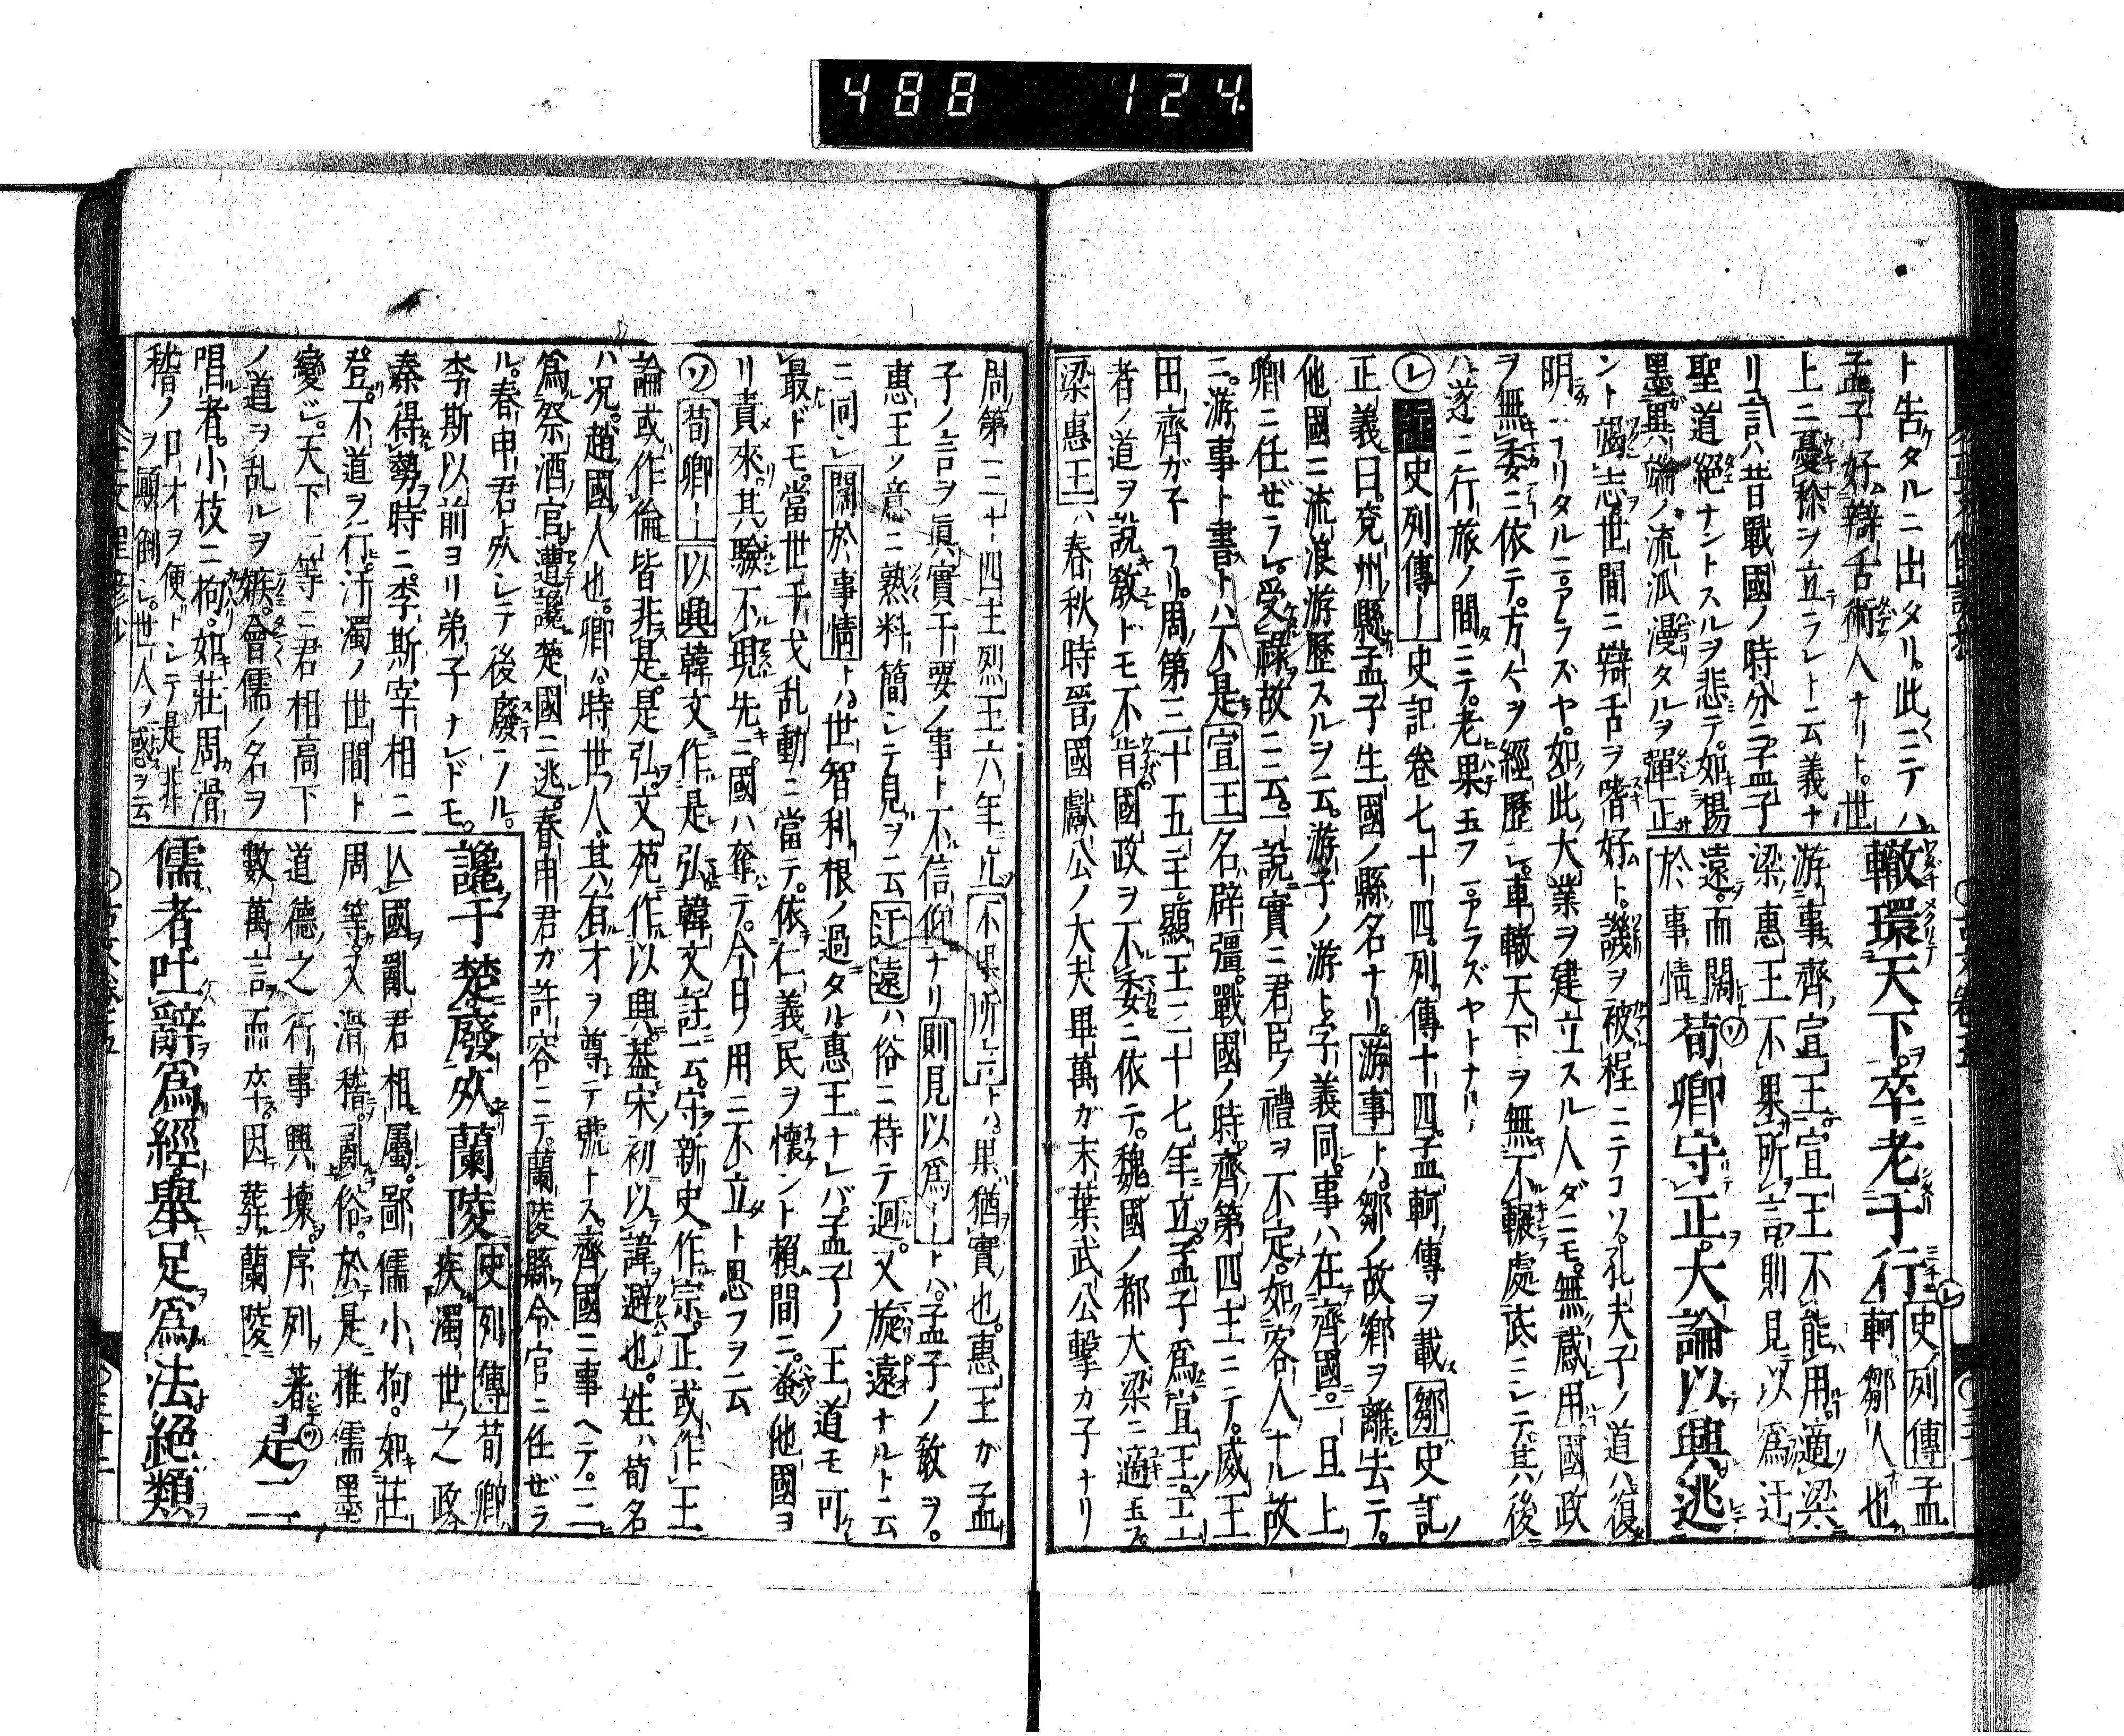 488 124
轍環天下卒老于行
史列傳孟
軻鄒人也
游事齊宣王宣王不能用適梁
梁惠王不果所言則見以為迂
遠而闊
於事情
荀卿守正大論以興逃
ト告タルニ出タリ。此ニテハ
孟子好辯舌術人ナリト。世
上ニ憂称ヲ立ラレト云義ナ
リ。言ハ昔戰國ノ時分ニ孟子
聖道絕ナントスルヲ悲テ。如楊
墨異端ノ流派漫タルヲ彈正
ント竭志世間ニ辯舌ヲ嗜好ト。譏ヲ被程ニテコソ。孔夫子ノ道ハ復
明ニフリタルニアラズヤ。如此大業ヲ建立スル人ダニモ。無感用國政
ヲ無委ニ依テ。方々ヲ經歷シ。車轍天下ヲ無不輾處底ニシテ。其ハ後
ハ遂ニ行旅ノ間ニテ。老果玉フニアラズヤトナリ
レ 註 史列傳 史記卷七十四。列傳十四。孟軻傳ヲ載 鄒 史記
正義曰。兗州縣。孟子生國ノ縣名ナリ。 游事 トハ。鄒ノ故鄉ヲ離去テ。
他國ニ流浪游歷スルヲ云。游子ノ游ト字義同。事ハ在齊國。且上
卿ニ任ゼラレ。受祿故ニ云。一說實ニ君臣ノ禮ヲ不定。如客人ナル故
ニ。游事ト書トハ不是 宣王 名辟彊。戰國ノ時。齊第四主ニテ。威王
田齊ガ子フリ。周第三十五主。顯王二十七年立。孟子爲宣王。王
者ノ道ヲ說敎ドモ不肯。國政ヲ不委ニ依テ。魏國ノ都大梁ニ適玉フ。
梁惠王 ハ春秋時晉國獻公ノ大夫畢萬ガ末葉武公擊カ子ナリ
周第三十四主烈王六年立 不果所言 トハ。果猶實也。惠王が孟
子ノ言ヲ眞實干要ノ事ト不信仰ナリ 則見以爲 トハ。孟子ノ敎ヲ。
惠王ノ意ニ熟料簡シテ見ヲ云 迂遠 ハ俗ニ持テ迴。又旋遠ナルト云
ニ同シ 闊於事情 トハ。世智利根ノ過タル惠王ナレバ。孟子ノ王道モ可
最ドモ。當世干戈乱動ニ當テ。依仁義民ヲ懷ント賴間ニ。蚤他國ヨ
リ責來。其驗不現先ニ。國ハ奪テ。今日ノ用ニ不立ト思フヲ云
ソ 荀卿 以興 韓文作是弘。韓文註云。守新史作宗。正或作王
論或作倫。皆非是。是弘文苑作以興。葢宋初以諱避也。姓ハ荀名
ハ况。趙國人也。卿ハ時世人。其有才ヲ尊テ號トス。齊國ニ事ヘテ。三
爲祭酒官。遭讒楚國ニ逃。春申君ガ許容ニテ。蘭陵縣令官ニ任ゼラ
ル。春申君死シテ後廢ニノル。
李斯以前ヨリ弟子ナレドモ。
秦得勢時ニ。李斯宰相ニ
登。不道ヲ行。汙濁ノ世間ト
變ジ。天下一等ニ君相高下
ノ道ヲ乱ルヲ嫉。會儒ノ名ヲ
唱者。小枝ニ拘。如莊周滑
稽ノ口才ヲ便トシテ是非
ヲ顚倒シ。世人ヲ惑ヲ云
讒于楚廢死蘭陵
史列傳 荀卿
疾濁世之政
亾國亂君相屬。鄙儒小拘。如莊
周等又滑稽亂俗。於是推儒墨
道德之行事興壞。序列著
數萬言而卒。因葬蘭陵
是二
儒者吐辭爲經舉足爲法絕類